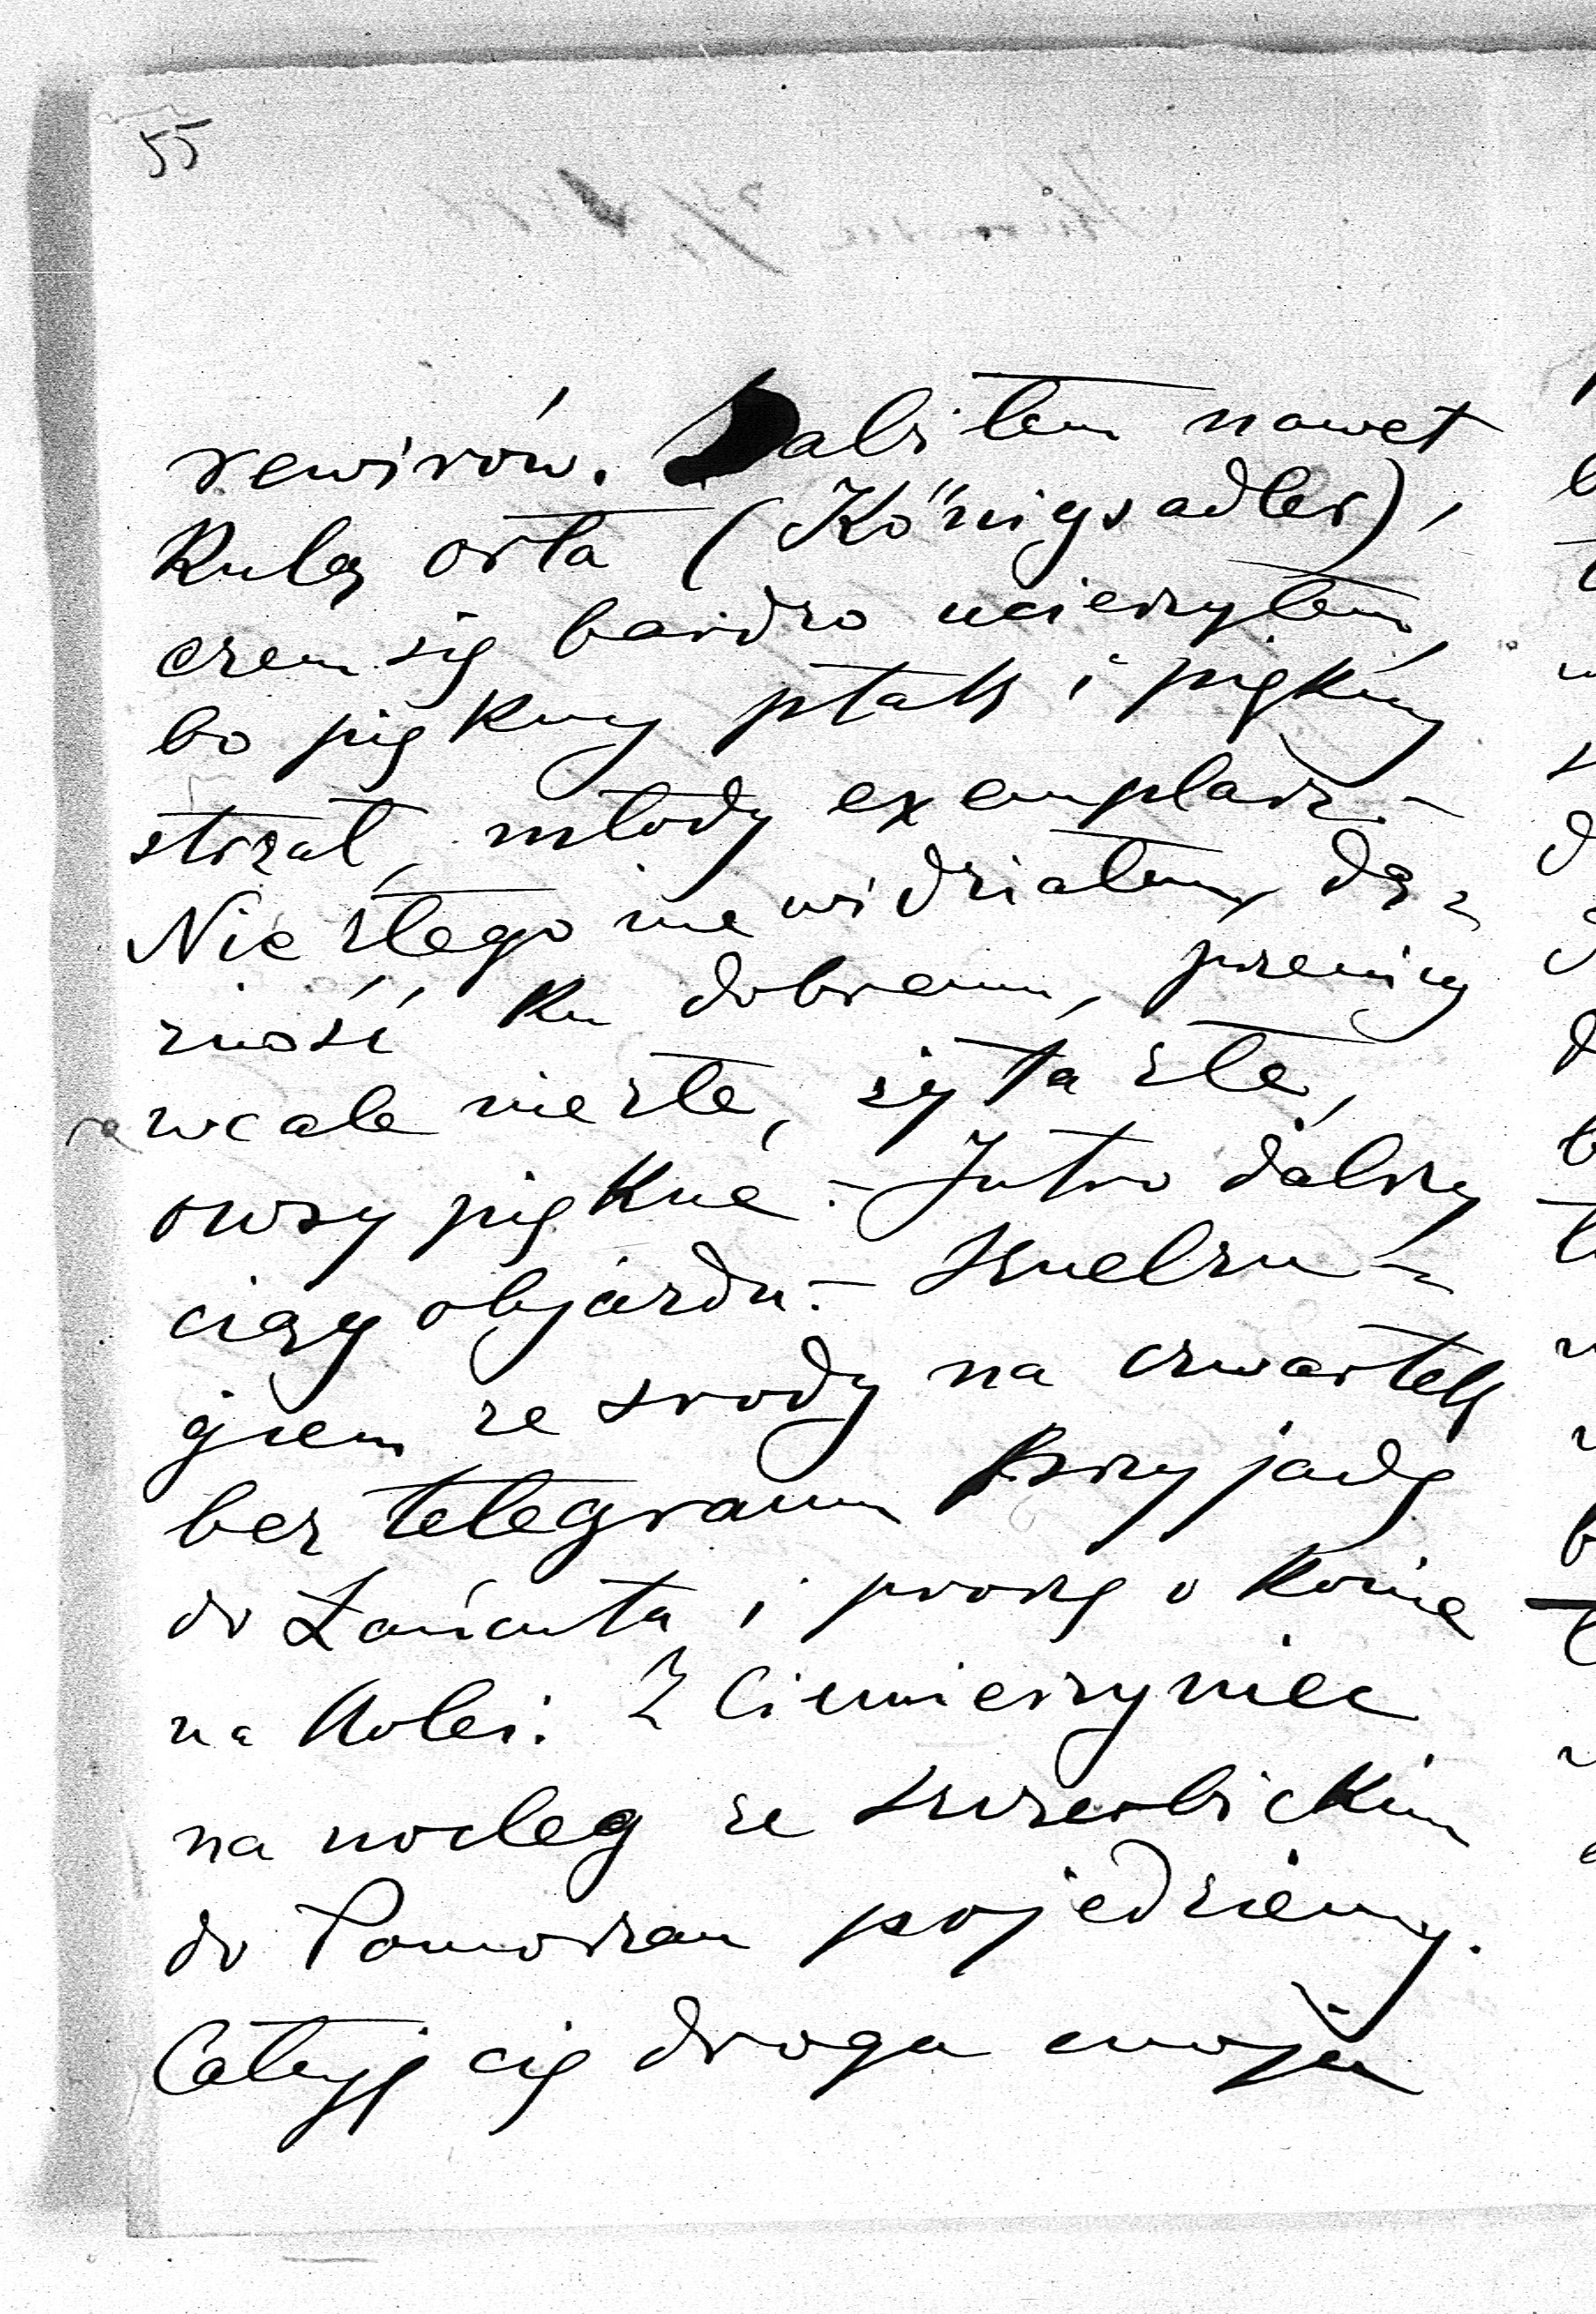 55
rewirów. Zabiłem nawet
Kulą orła (Königsadler),
czem się bardzo ucieszyłem,
bo piękny ptak i piękny
strzał, młody exemplarz. –
Nic złego nie widziałem, dą-
żność ku dobremu, pszenicy
wcale niezłe, żyta złe,
owsy piękne. – Jutro dalszy
ciąg objazdu. – Sznelcu-
giem ze srody na czwartek
bez telegramu Przyjadę
do Łańcuta i proszę o Konie
na Kolei. Z Ciemierzyniec
na nocleg ze Szczerbickim
do Pomorzan pojedziemy.
Całuję cię droga moja